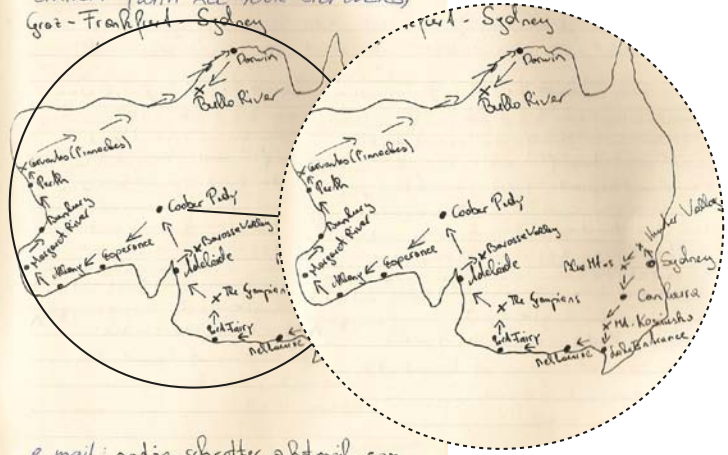 (WITH ALL YOUR
Graz - Frankfurt - Sydney
Darwin
Bullo River
Cervantes (Pinnacles)
Perth
Bunbury
Margaret River
Albany
Esperance
Coober Pedy
Barossa Valley
Adelaide
The Grampians
Port Fairy
Melbourne
furt - Sydney
Darwin
Bullo River
Cervantes (Pinnacles)
Perth
Bunbury
Margaret River
Albany
Esperance
Coober Pedy
Barossa Valley
Adelaide
The Grampians
Port Fairy
Melbourne
Lakes Entrance
Mt. Kosciusko
Canberra
Blue Mt-s
Sydney
Hunter Valley
e-mail: